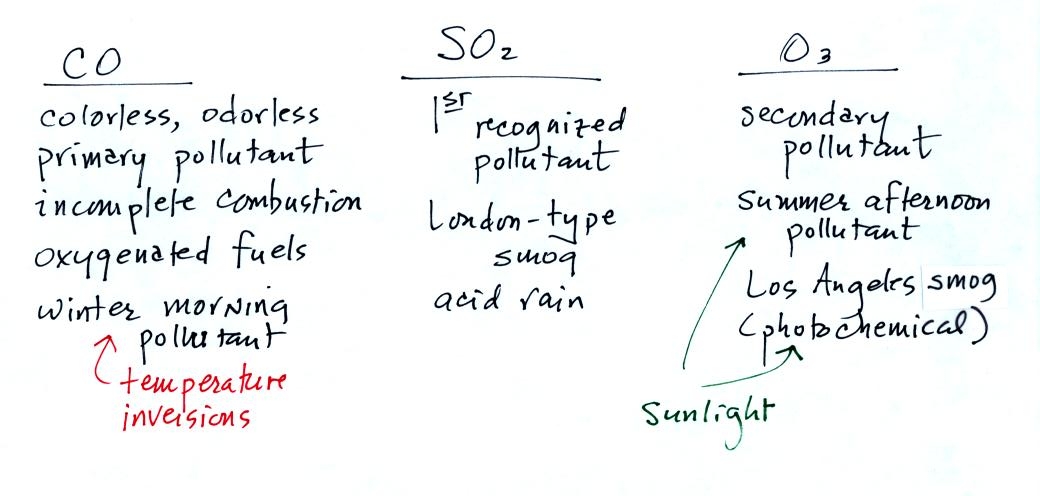 CO
colorless, odorless
primary pollutant
incomplete combustion
oxygenated fuels
winter morning
pollutant
temperature
inversions
SO₂
1st
recognized
pollutant
London-type
smog
acid rain
O₃
secondary
pollutant
summer afternoon
pollutant
Los Angeles smog
(photochemical)
sunlight